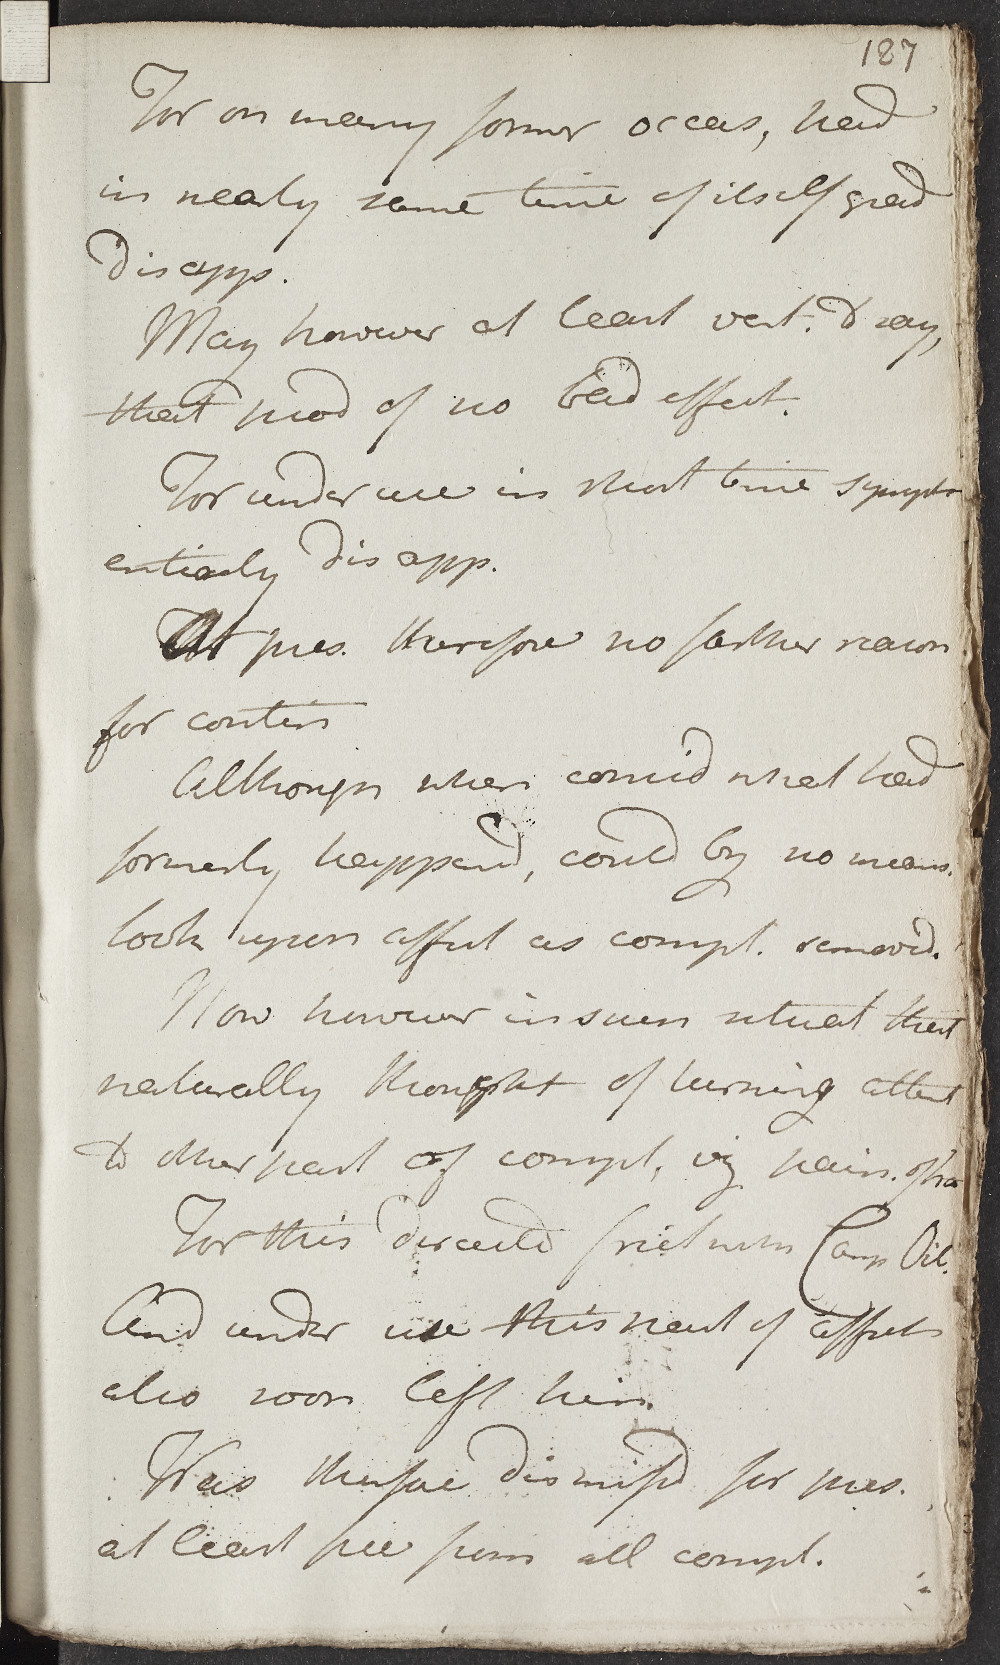 187
For on many former occas, had
in nearly same time of itself grad
disapp.
May however at least vent. to say,
that prod of no bad effect.
For under use in short time sympts
entirely disapp.
At pres. therefore no farther reason
for contin
Although when consid what had
formerly happend, could by no means
look upon affect as compl. removd.
Now however in such situat that
naturally thought of turning attent
to other part of compl, viz pain. of
For this directed frict with Camp Oil.
And under use this part of affect
also soon left him.
Was therefore dismissd for pres.
at least free from all compl.